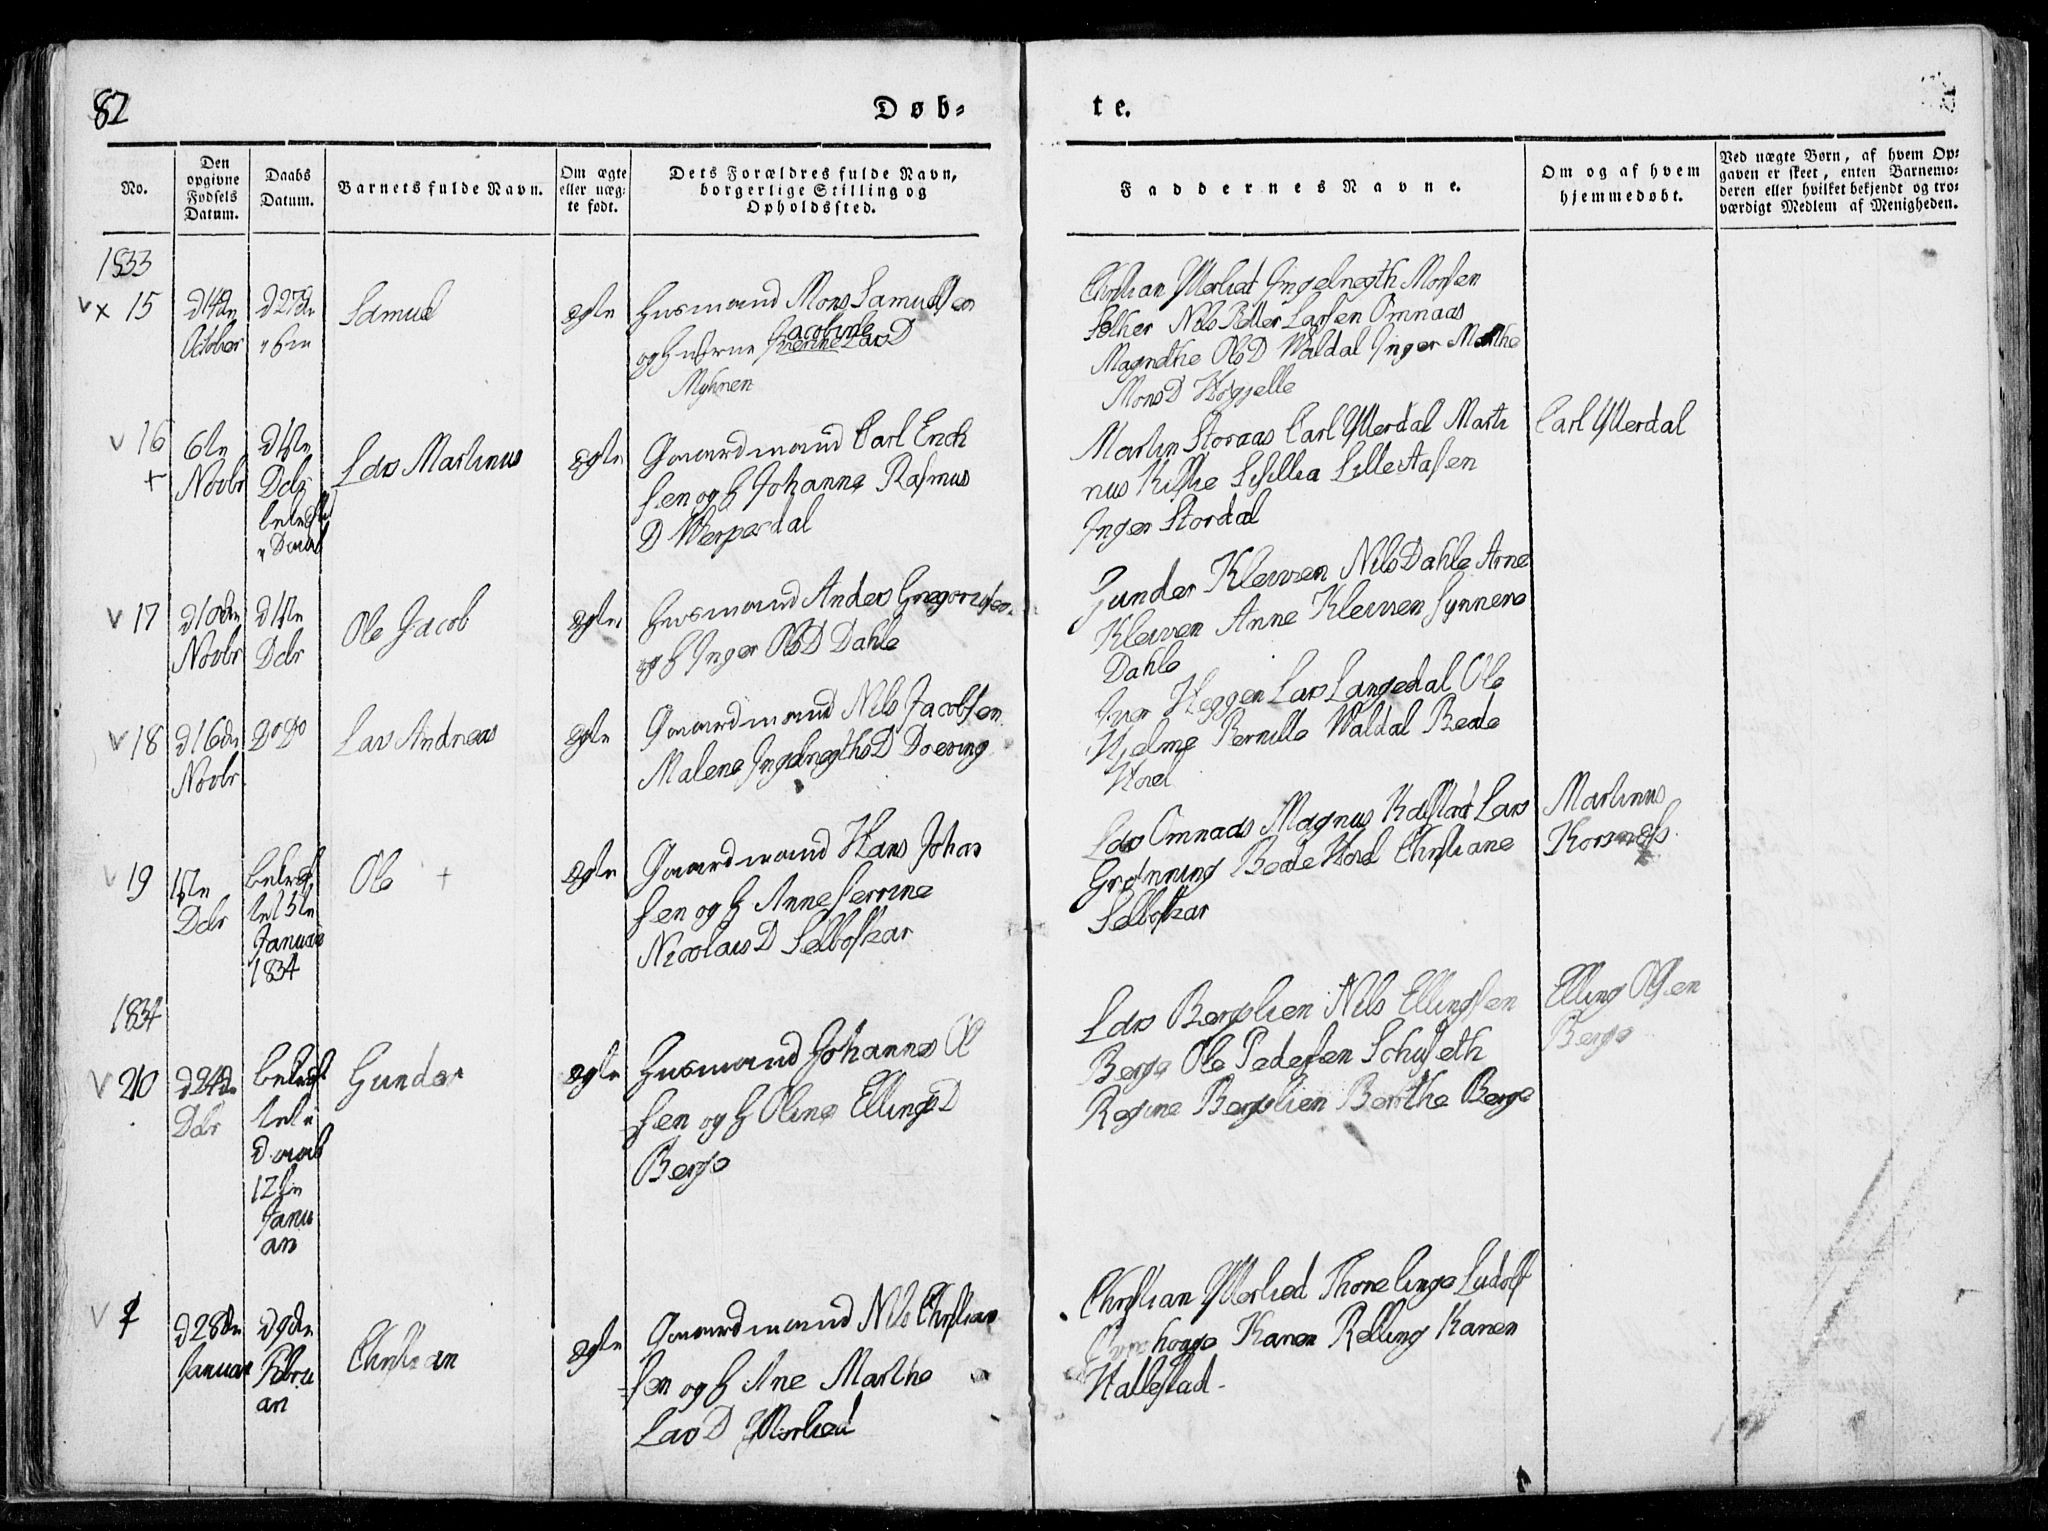 82
Døb-
te.
No.
Den opgivne Fødsels Datum.
Daabs Datum.
Barnets fulde Navn.
Om ægte eller uæg-te født.
Dets Forældres fulde Navn, borgerlige Stilling og Opholdssted.
Faddernes Navne.
Om og af hvem hjemmedøbt.
Ved uægte Børn, af hvem Op-gaven er skeet, enten Barnemo-deren eller hvilket bekjendt og tro-værdigt Medlem af Menigheden.
1833
15
d 14de
October
d 27de
Samuel
ægte
Huusmand Mons Samuelsen
og Hustrue Jacobine LarsD
Myhren
Christian Ytterlied Ingebregth Monsen
Nils Petter Larsen Omnaas
Magrethe OlsD Waldal Inger Marthe
MonsD
16
6te
Novbr
d 1ste
Dcbr
Lars Martinus
ægte
Gaardmand Carl Erich
sen og H Johanne Rasmus
D
Martin Storaas Carl Ytterdal Marti
nus
Inger Stordal
Carl Ytterdal
17
d 10de
Novbr
d 1ste
Dcbr
Ole Jacob
ægte
Huusmand Anders Gregoriusen
og H Inger OlsD Dahle
Gunder Klewen Nils Dahle Arne
Klewen Anne Klewen Synnere
Dahle
18
d 16de
Novbr
Do Do
Lars Andreas
ægte
Gaardmand Nils Jacobsen
Malene IngebregthsD Dovring
Iver Heggen Lars Langedal Ole
Hjelme Pernille Waldal Beate
19
1ste
Dcbr
bekræf
tet 5te
Januar
1834
Ole
ægte
Gaardmand Hans Johan
sen og H Anne Serrine
NicolaisD Selboskar
Lars Omnaas Magnus Lars
Grønning Beate Christiane
Selboskar
Martinus
Korsnæs
1834
20
d 24de
Dcbr
bekræf
tet
Daab
12te
Janu
ari
Gunder
ægte
Huusmand Johannes Ol
sen og H Oline EllingsD
Berge
Lars Bergslien Nils Ellingsen
Berge Ole Pedersen
Regine Bergslien Berthe Berge
Elling Olsen
Berge
1
d 28de
Januar
d 9de
Febru
ari
Christian
ægte
Gaardmand Nils Christian
sen og H Ane Marthe
LarsD Ytterlied
Christian Ytterlied Ludolf
Karen Relling Karen
Hallestad